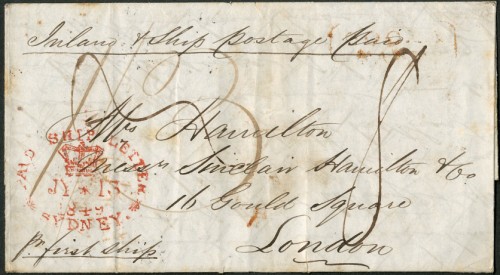 Inland & Ship Postage Paid
8
Mrs Hamilton
Messrs Sinclair Hamilton & Co
16 Gould Square
London
Pr first ship
PAID SHIP LETTER
JY * 13
1849
SYDNEY